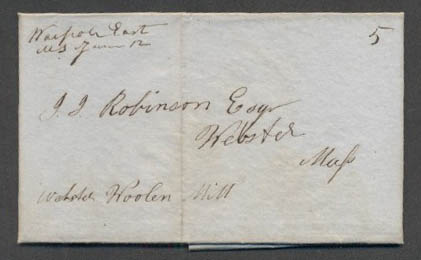 Walpole East
Ms June 12
5
J. J. Robinson Esqr
Webster
Mass
Webster Woolen Mill